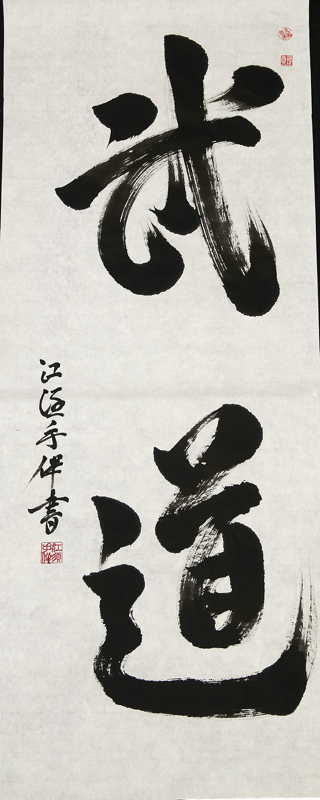 武道
江涯手伴書